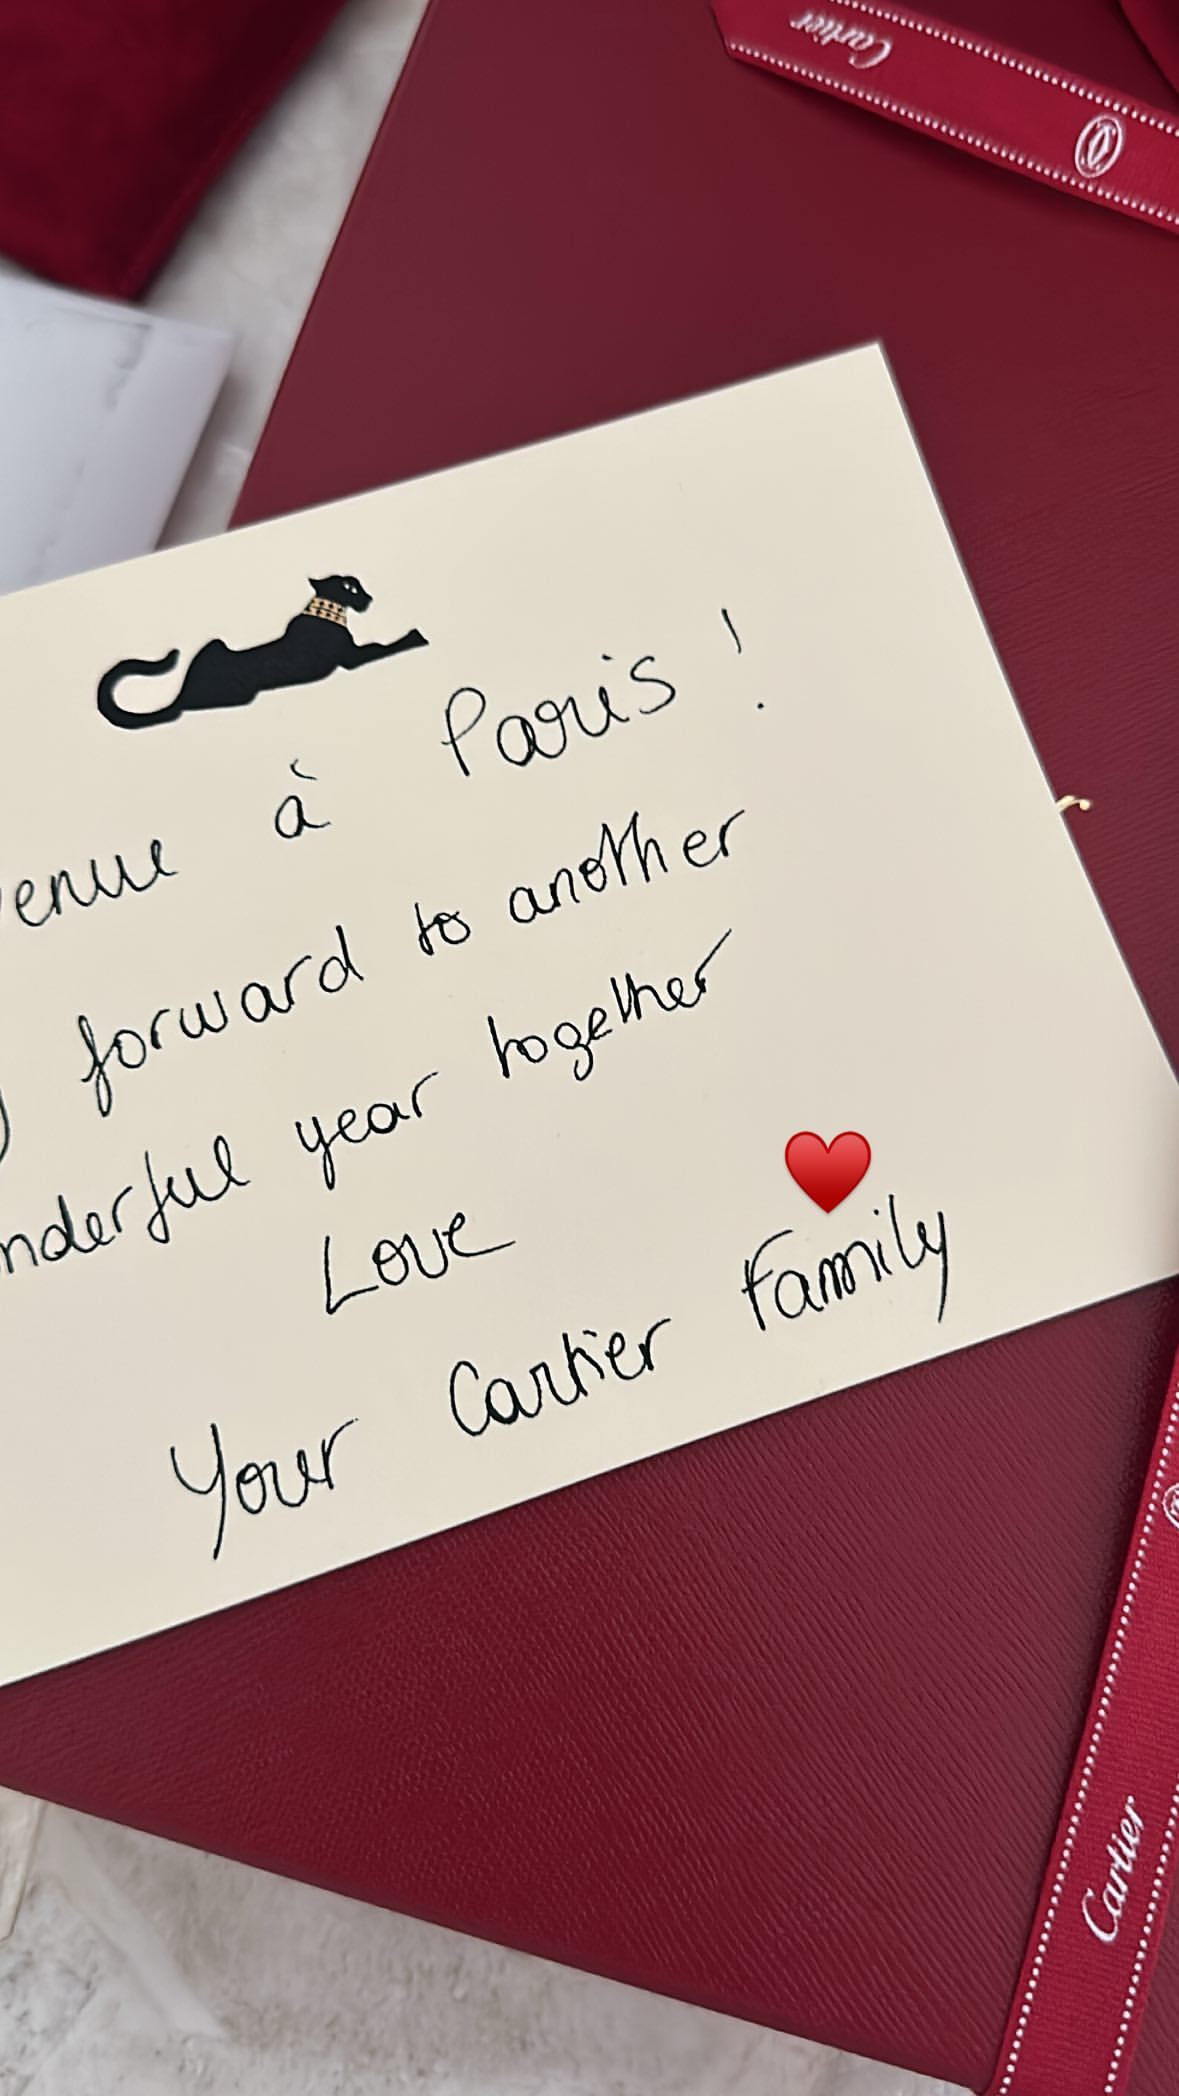 Cartier
enue à Paris !
forward to another
nderful year together
Love
Your Cartier Family
Cartier